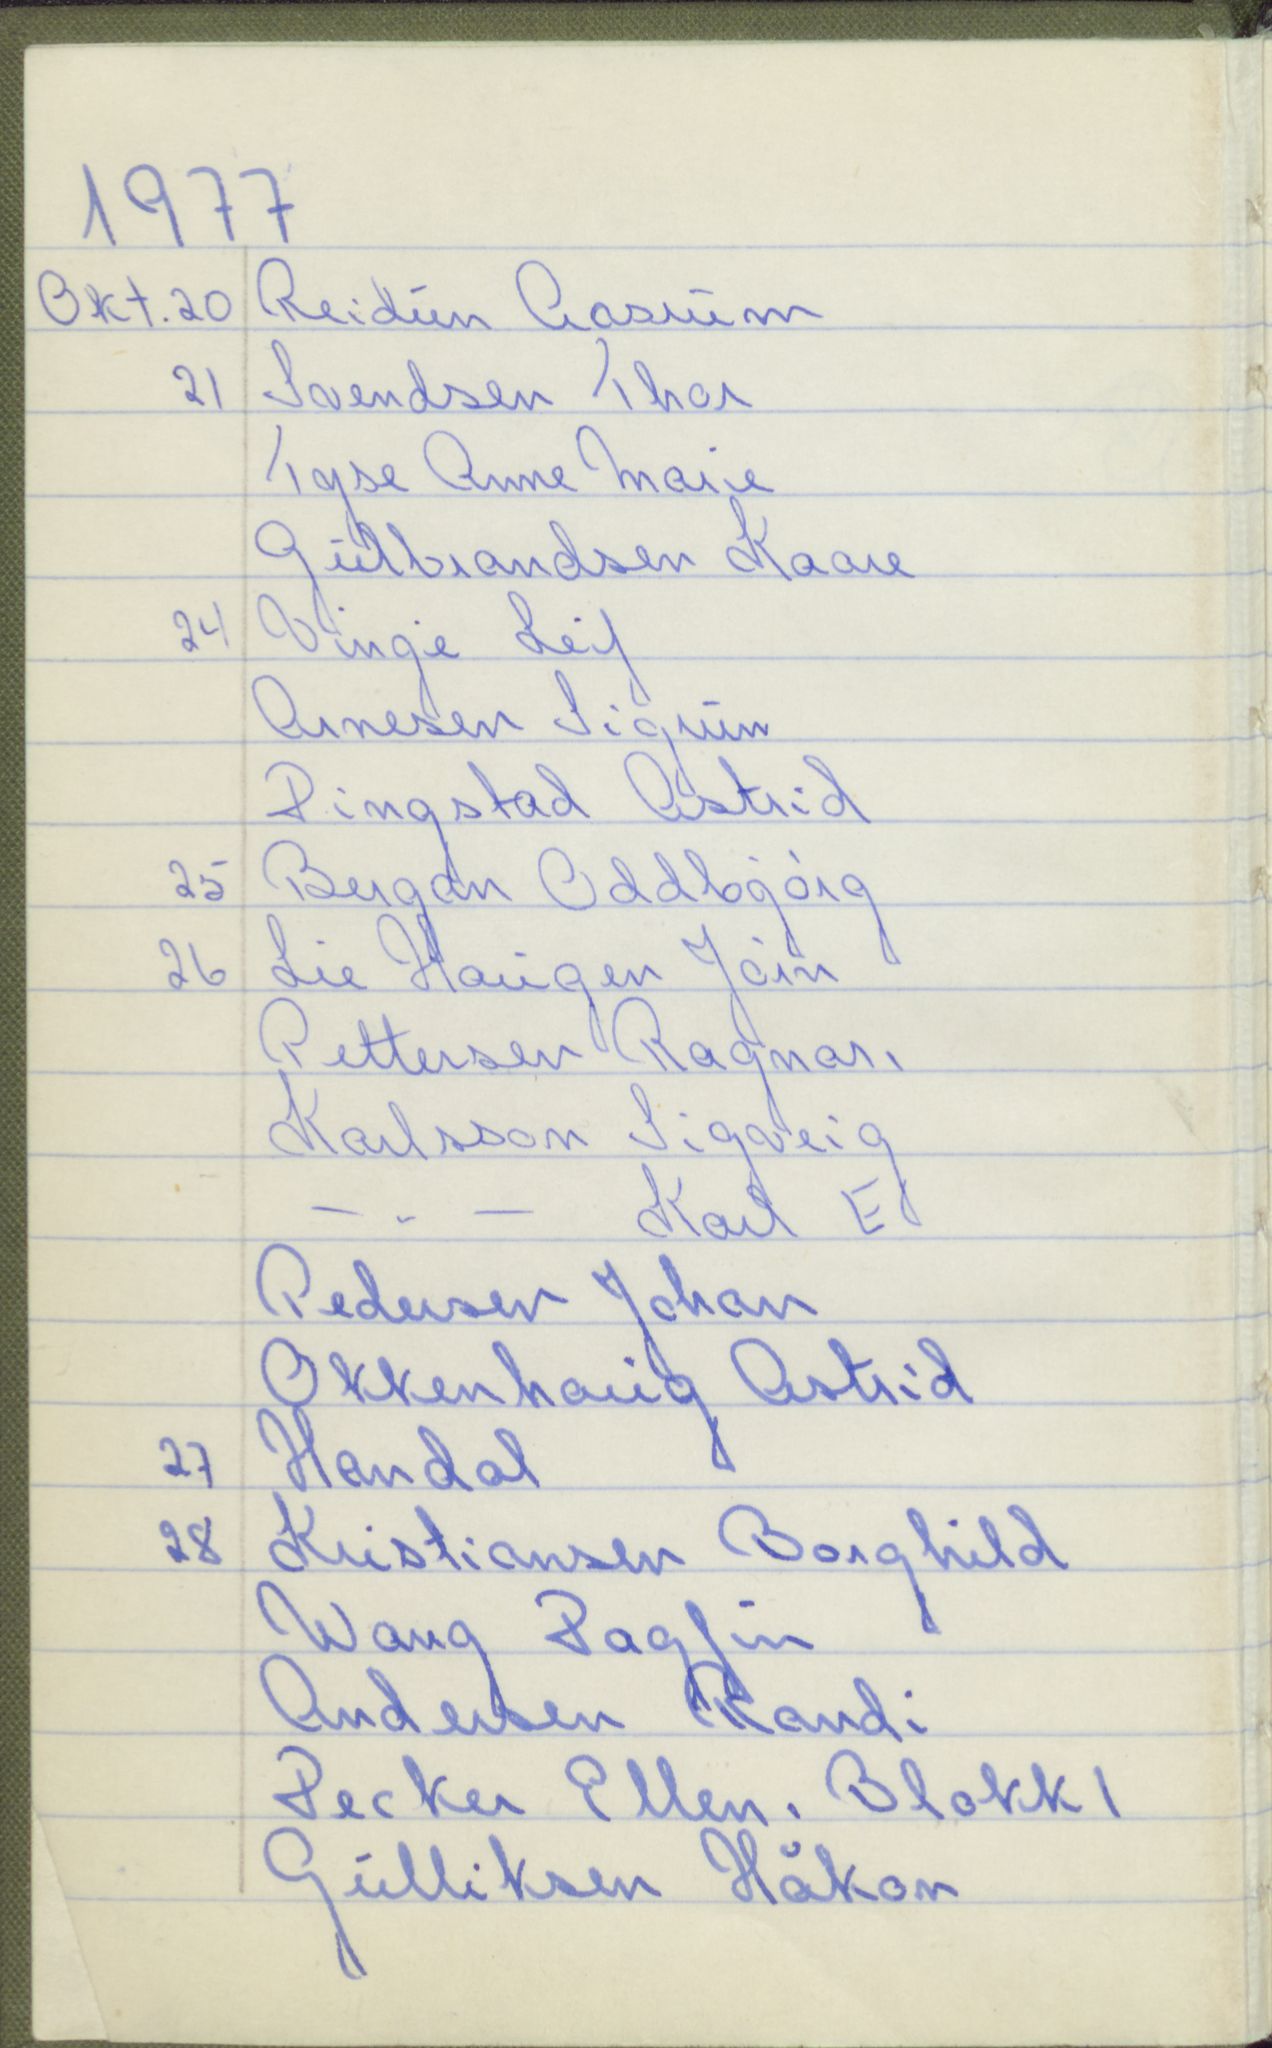 1977
Okt. 20 Reidun Aasrum
21 Svendsen Thor
Tyse Anne Marie
Gulbrandsen Kaare
24 Vinje Leif
Arnesen Sigrun
Dingstad Astrid
25 Bergan Oddbjørg
26 Lie Haugen Jørn
Pettersen Ragnar.
Karlsson Sigveig
— . — Karl E
Pedersen Johan
Okkenhaug Astrid
27 Handal
28 Kristiansen Borghild
Wang Dagfin
Andersen Randi
Decker Ellen. Blokk 1
Gulliksen Håkon